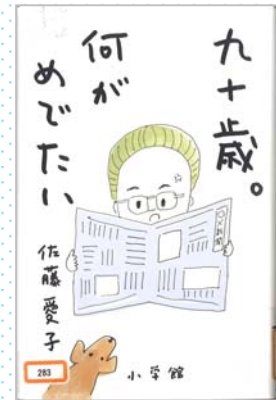 九十歳。
何が
めでたい
佐藤愛子
小学館
283